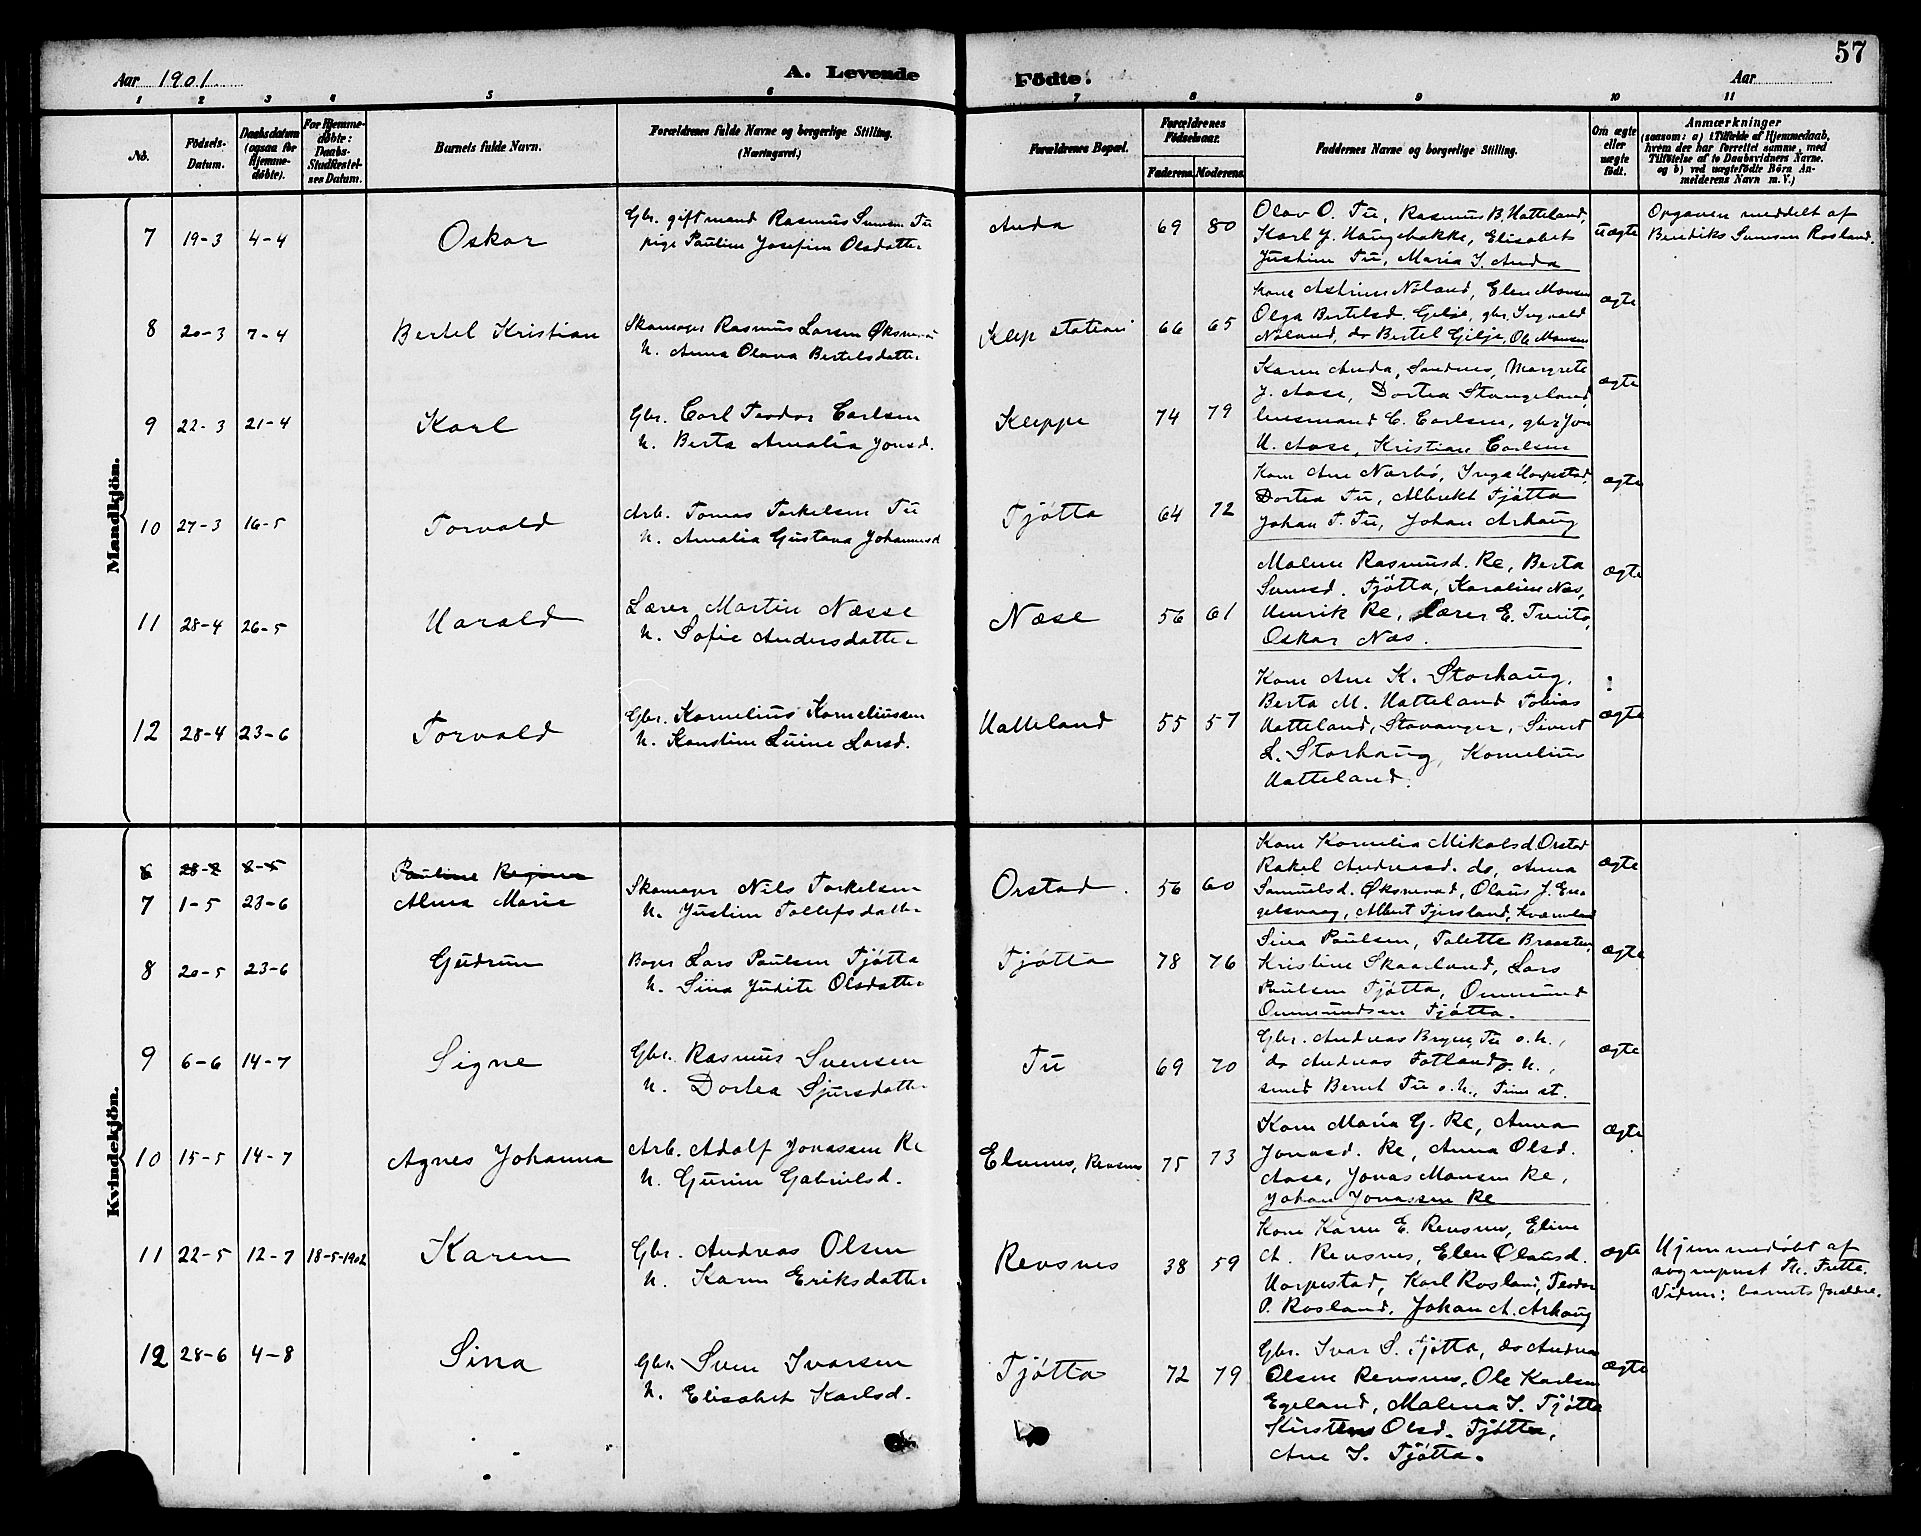 57
Aar 1901
A. Levende Födte.
Aar
1 2 3 4 5 6 7 8 9 10 11
No.
Födsels-Datum.
Daabsdatum (ogsaa for Hjemme-döbte).
For Hjemme-döbte: Daabs-Stadfæstel-ses Datum.
Barnets fulde Navn.
Forældrenes fulde Navne og borgerlige Stilling. (Næringsvei.)
Forældrenes Bopæl.
Forældrenes Födselsaar.
Faderens. Moderens.
Faddernes Navne og borgerlige Stilling.
Om ægte eller uægte födt.
Anmærkninger
(saasom: a) i Tilfælde af Hjemmedaab, hvem der har forrettet samme, med Tilföielse af to Daabsvidners Navne. og b) ved uægtefödte Börn An-melderens Navn m. V.)
Mandkjön.
7 19-3 4-4 Oskar
Gbr. gift mand Rasmus Svensen Tu
pige Pauline Josefine Olsdatter
Anda 69 80
Olav O. Tu, Rasmus B. Hatteland,
Karl J. Haugebakke, Elisabet
Justine Tu, Maria S. Anda
uægte
Opgaven meddelt af
Bendiks Svensen Rosland.
8 20-3 7-4 Bertel Kristian
Skomager Rasmus Larsen Øksnevad
H. Anna Olava Bertelsdatter
Klep station 66 65
Kone Astrine Nöland, Elen Monsen
Olga Bertelsd. Gilje, gbr. Ingvald
Nöland, do Bertel Gilje, Ole Monsen
ægte
9 22-3 21-4 Karl
Gbr. Carl Teodor Carlsen
H. Berta Amalia Jonsd.
Kleppe 74 79
Karen Anda, Sandnes, Margrete
J. Aase, Dortea Stangeland,
lensmand C. Carlsen, gbr. Jon
H. Aase, Kristian Carlsen
ægte
10 27-3 16-5 Torvald
Arb. Tomas Torkelsen Tu
H. Amalia Gustava Johannesd
Tjøtta 64 72
Kone Ane Nærbö, Inga Horpestad,
Dortea Tu, Albrekt Tjøtta
Johan T. Tu, Johan Arhaug
ægte
11 28-4 26-5 Harald
Lærer Martin Næsse
H. Sofie Andersdatter
Næse 56 61
Malene Rasmusd. Re, Berta
Svensd. Tjøtta, Karoline Næs,
Henrik Re, Lærer E. Tveito,
Oskar Næs.
ægte
12 28-4 23-6 Torvald
Gbr. Kornelius Korneliussen
H. Konstine Luine Larsd.
Hatteland 55 57
Kone Ane K. Storhaug,
Berta M. Hatteland Tobias
Hatteland, Stavanger, Sivert
L. Storhaug, Kornelius
Hatteland.
ægte
Kvindekjön.
6 28-2 8-5 Pauline Regine
7 1-5 23-6 Alma Marie
Skomager Nils Torkelsen
H. Justine Tollefsdatter
Orstad. 56 60
Kone Kornelia Mikalsd. Orstad
Rakel Andreasd. do, Anna
Samuelsd. Øksnevad, Olaus J. En-
gelsvaag, Albert Tjersland, Kværnland
ægte
8 20-5 23-6 Gudrun
Bager Lars Paulsen Tjøtta
H. Sina Judite Olsdatter
Tjøtta 78 76
Sina Paulsen, Tolette Braasten,
Kristine Skaarland, Lars
Paulsen Tjøtta, Ommund
Ommundsen Tjøtta.
ægte
9 6-6 14-7 Signe
Gbr. Rasmus Svensen
H. Dortea Sjursdatter
Tu 69 70
Gbr. Andreas Bryne Tu o.h.,
do Andreas Fotland o.h.,
smed Bernt Tu o.h., Time st.
ægte
10 15-5 14-7 Agnes Johanna
Arb. Adolf Jonassen Re
H. Gurine Gabrielsd.
Elvenes, Revsnes 75 73
Kone Maria G. Re, Anna
Jonasd. Re, Anna Olsd.
Aase, Jonas Monsen Re,
Johan Jonassen Re
ægte
11 22-5 12-7 18-5-1902 Karen
Gbr. Andreas Olsen
H. Karen Eriksdatter
Revsnes 38 59
Kone Karen E. Revsnes, Eline
A. Revsnes, Elen Olausd.
Horpestad, Karl Rosland, Teodor
P. Rosland, Johan A. Arhaug
ægte
Hjemmedöbt af
sogneprest Th. Frette.
Vidner: barnets forældre.
12 28-6 4-8 Sina
Gbr. Sven Ivarsen
H. Elisabet Karlsd.
Tjøtta 72 79
Gbr. Ivar S. Tjøtta, do Andreas
Olsen Revsnes, Ole Karlsen
Egeland, Malena S. Tjøtta
Kirstens Olsd. Tjøtta,
Ane S. Tjøtta.
ægte